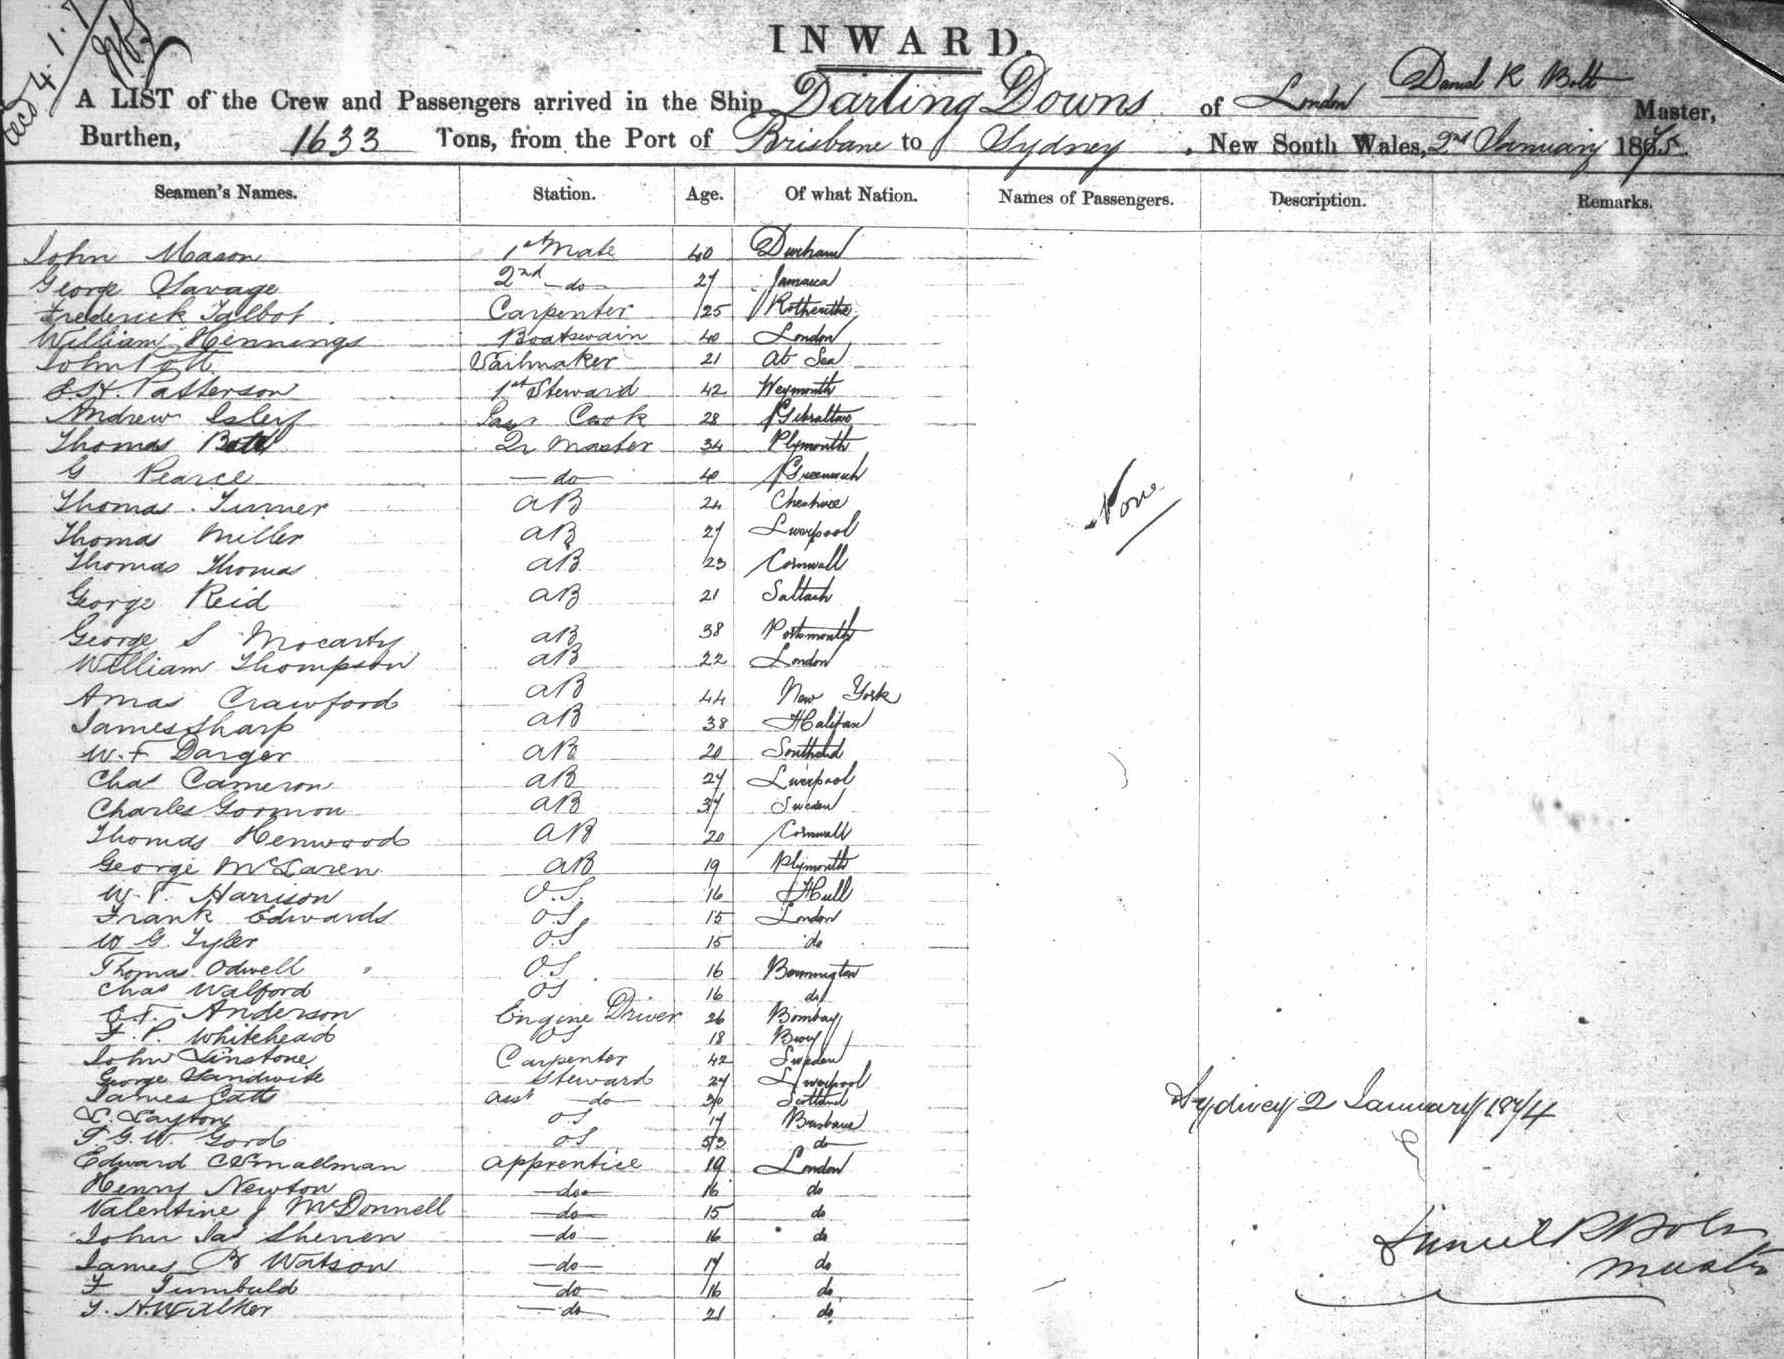 INWARD.
4.1.7
A LIST of the Crew and Passengers arrived in the Ship Darling Downs of London Daniel R Bolt Master,
Burthen, 1633 Tons, from the Port of Brisbane to Sydney, New South Wales, 2nd January 1875.
Seamen's Names. Station. Age. Of what Nation. Names of Passengers. Description. Remarks.
John Mason 1st Mate 40 Durham
George Savage 2nd do 27 Jamaica
Frederick Talbot Carpenter 25 Rotherithe
William Hennings Boatswain 40 London
John Sailmaker 21 at Sea
Patterson 1st Steward 42 Weymouth
Andrew Cook 28 Gibraltar
Thomas Qr Master 34 Plymouth
G Pearce do 40 Greenwich
Thomas Turner AB 24 Cheshire
None
Thomas Miller AB 27 Liverpool
Thomas Thomas AB 23 Cornwall
George Reid AB 21 Saltash
George S Mocarty AB 38 Portsmouth
William Thompson AB 22 London
Amas Crawford AB 44 New York
James Sharp AB 38 Halifax
W. F Darger AB 20 Southend
Chas Cameron AB 27 Liverpool
Charles Gormon AB 37 Sweden
Thomas Henwood AB 20 Cornwall
George McLaren AB 19 Plymouth
W. T. Harrison O.S. 16 Hull
Frank Edwards O.S. 15 London
W G. Tyler O.S 15 do
Thomas Odwell O.S 16
Chas Walford OS 16 do
Anderson Engine Driver 26 Bombay
F. P. Whitehead OS 18
John Linstone Carpenter 42 Sweden
George Sandwith Steward 27 Liverpool
James Catt Asst do 30 Scotland
Layton OS 17 Brisbane
Sydney 2 January 1874
G. W. Gord OS do
Edward Smallman Apprentice 19 London
Henry Newton do 16 do
Valentine J McDonnell do 15 do
John Jas Shenen do 16 do
Daniel R Bolt
James B Watson do 17 do
Master
F Turnbuld do 16 do
H. Walker do 21 do